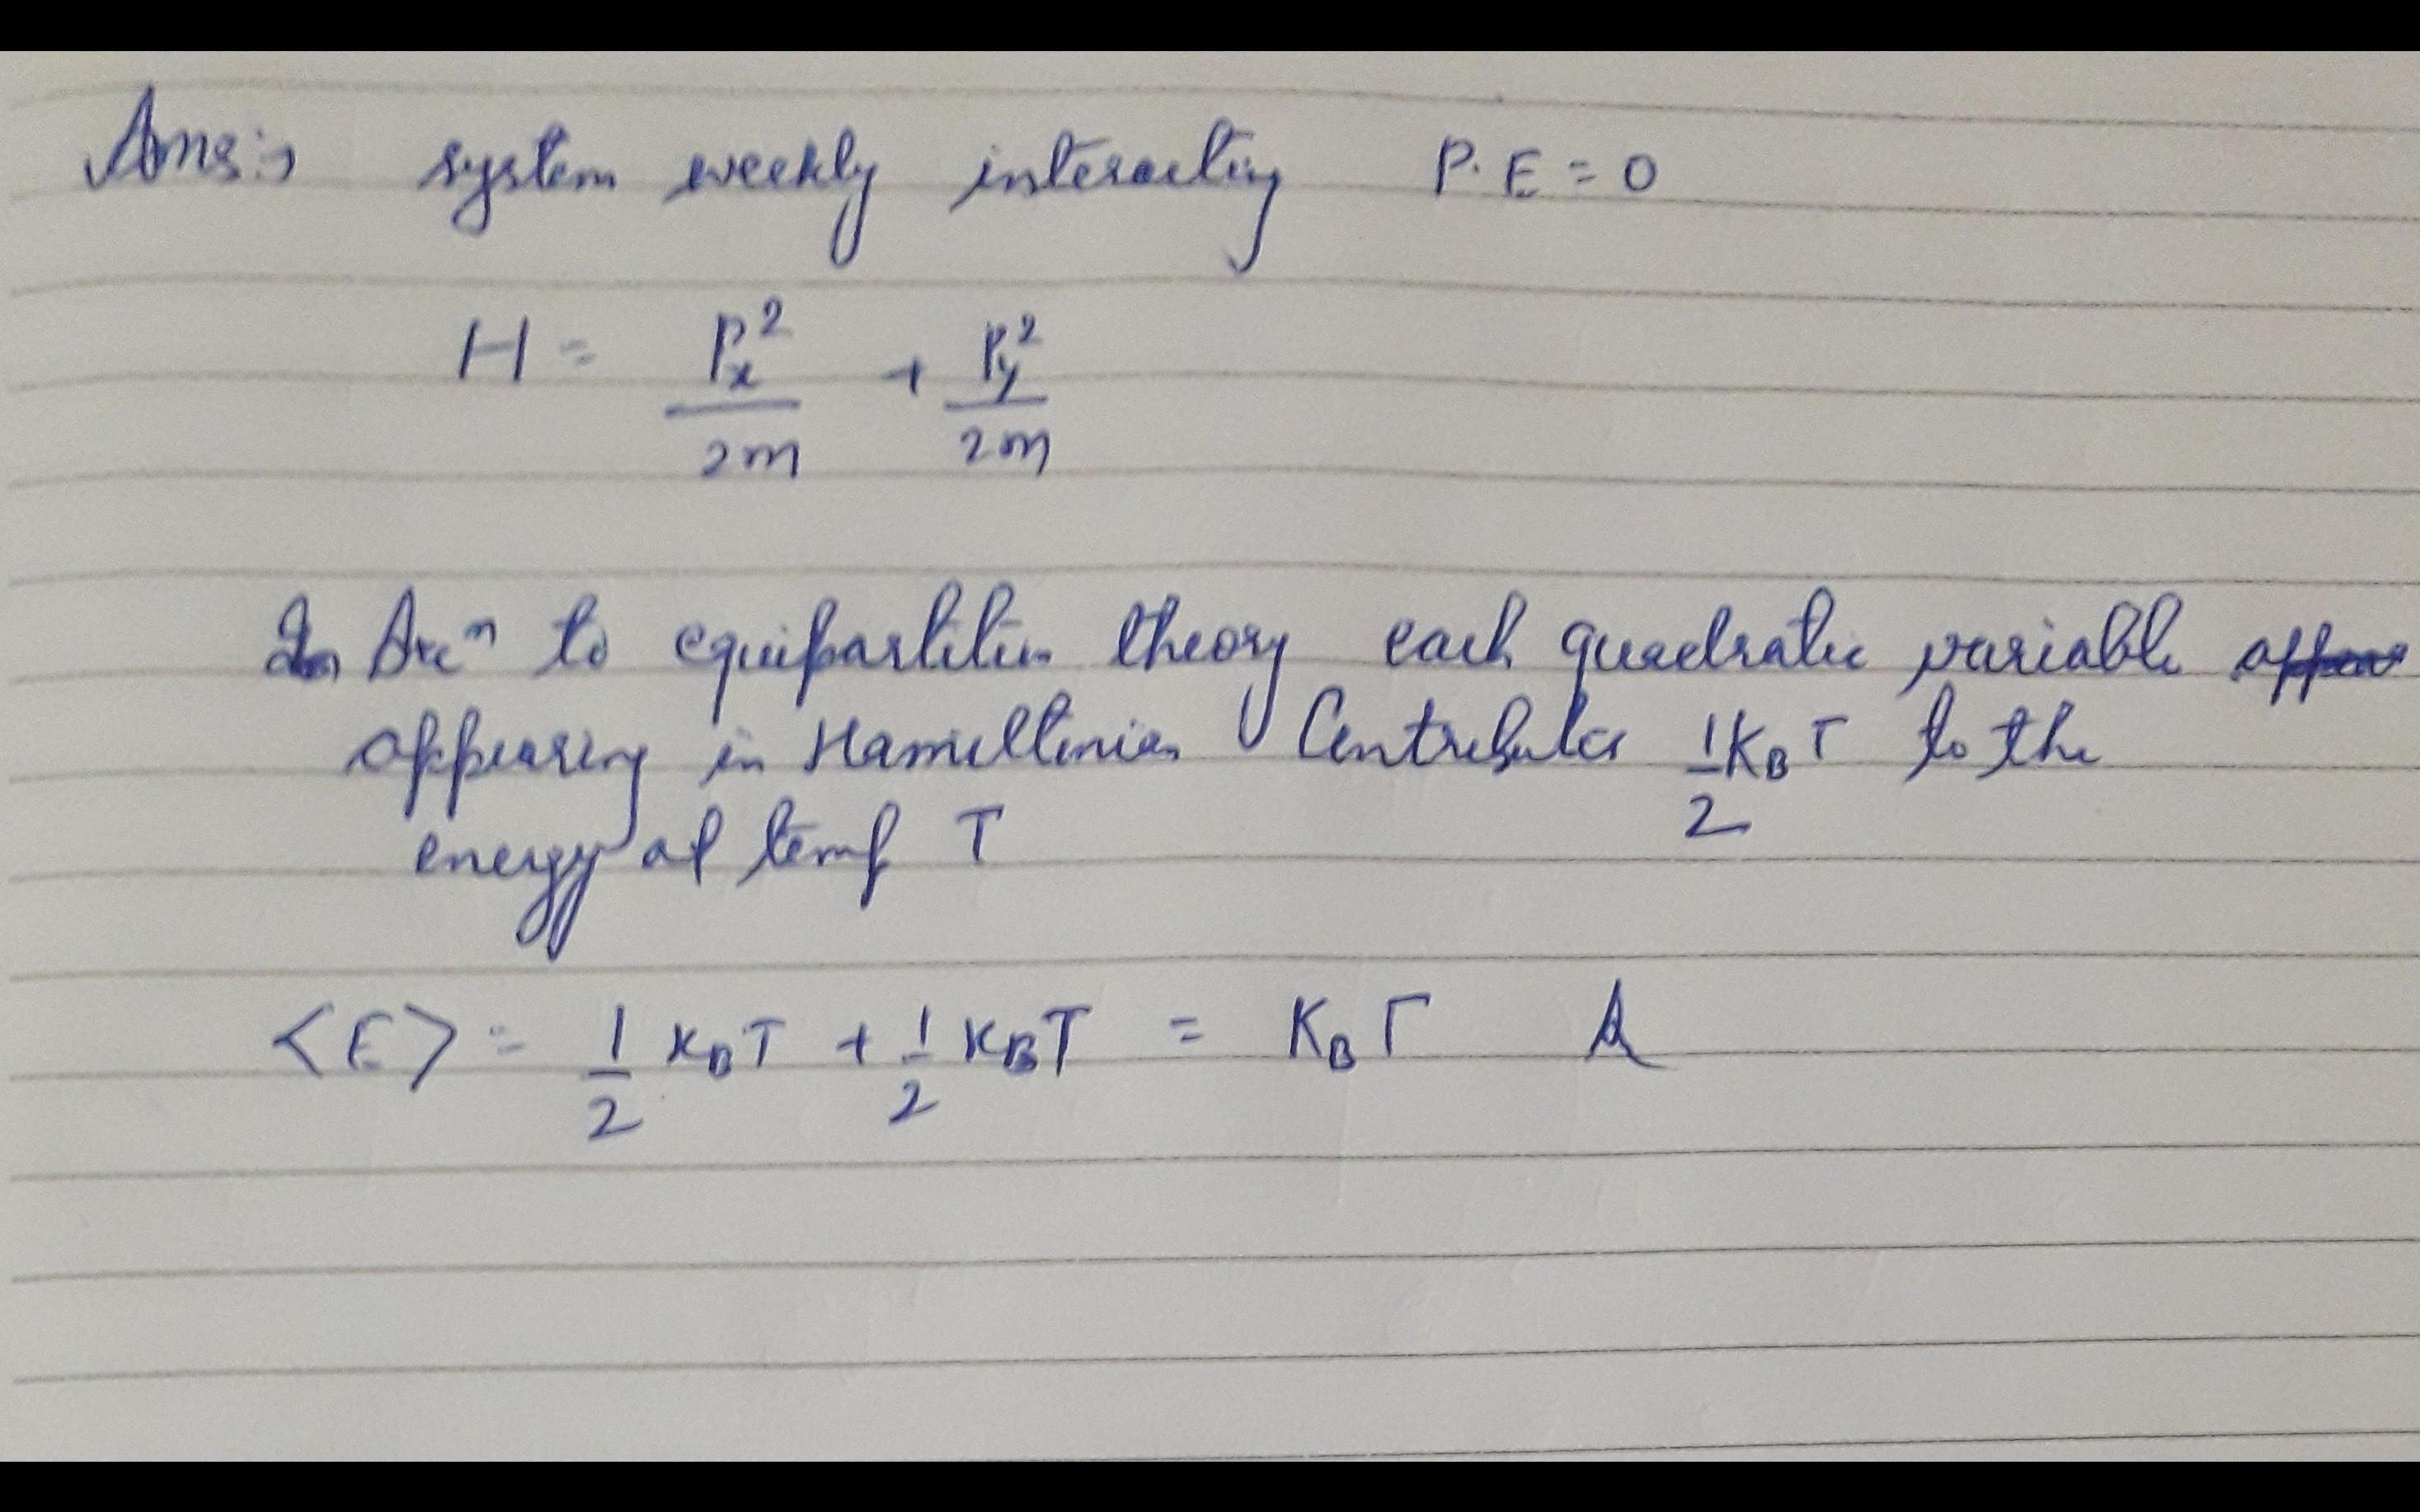 Ans:→ system weekly interacting P.E = 0
H = Px²/2m + Py²/2m
In Accⁿ to equipartition theory each quadratic variable
appearing in Hamiltonian Contributes 1/2 KBT to the
energy at temp T
<E> = 1/2 KBT + 1/2 KBT = KBT A